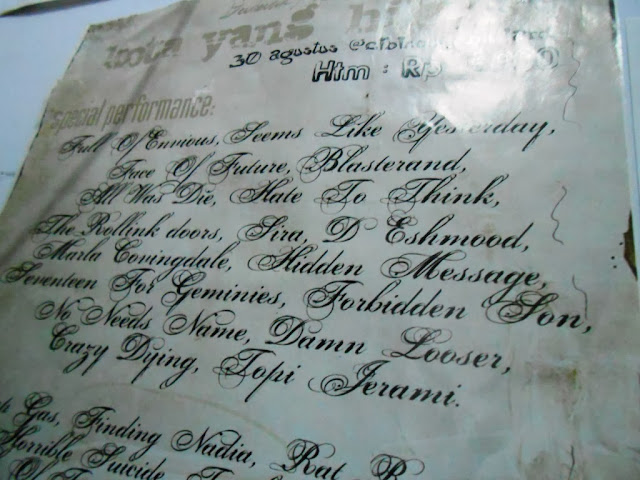 yang
30 agustus
Htm : Rp
special performance:
Full Of Envious, Seems Like Yesterday,
Face Of Future, Blasterand,
All Was Die, Hate To Think,
The Rollink doors, Sira, D Eshmood,
Marla Covingdale, Hidden Message,
Seventeen For Geminies, Forbidden Son,
No Needs Name, Damn Looser,
Crazy Dying, Topi Jerami.
Gas, Finding Nadia, Rat
Horrible Suicide,
Of